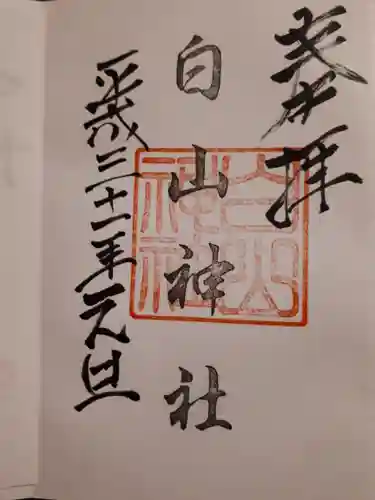 奉拝
白山神社
平成三十一年元旦
白山
神社